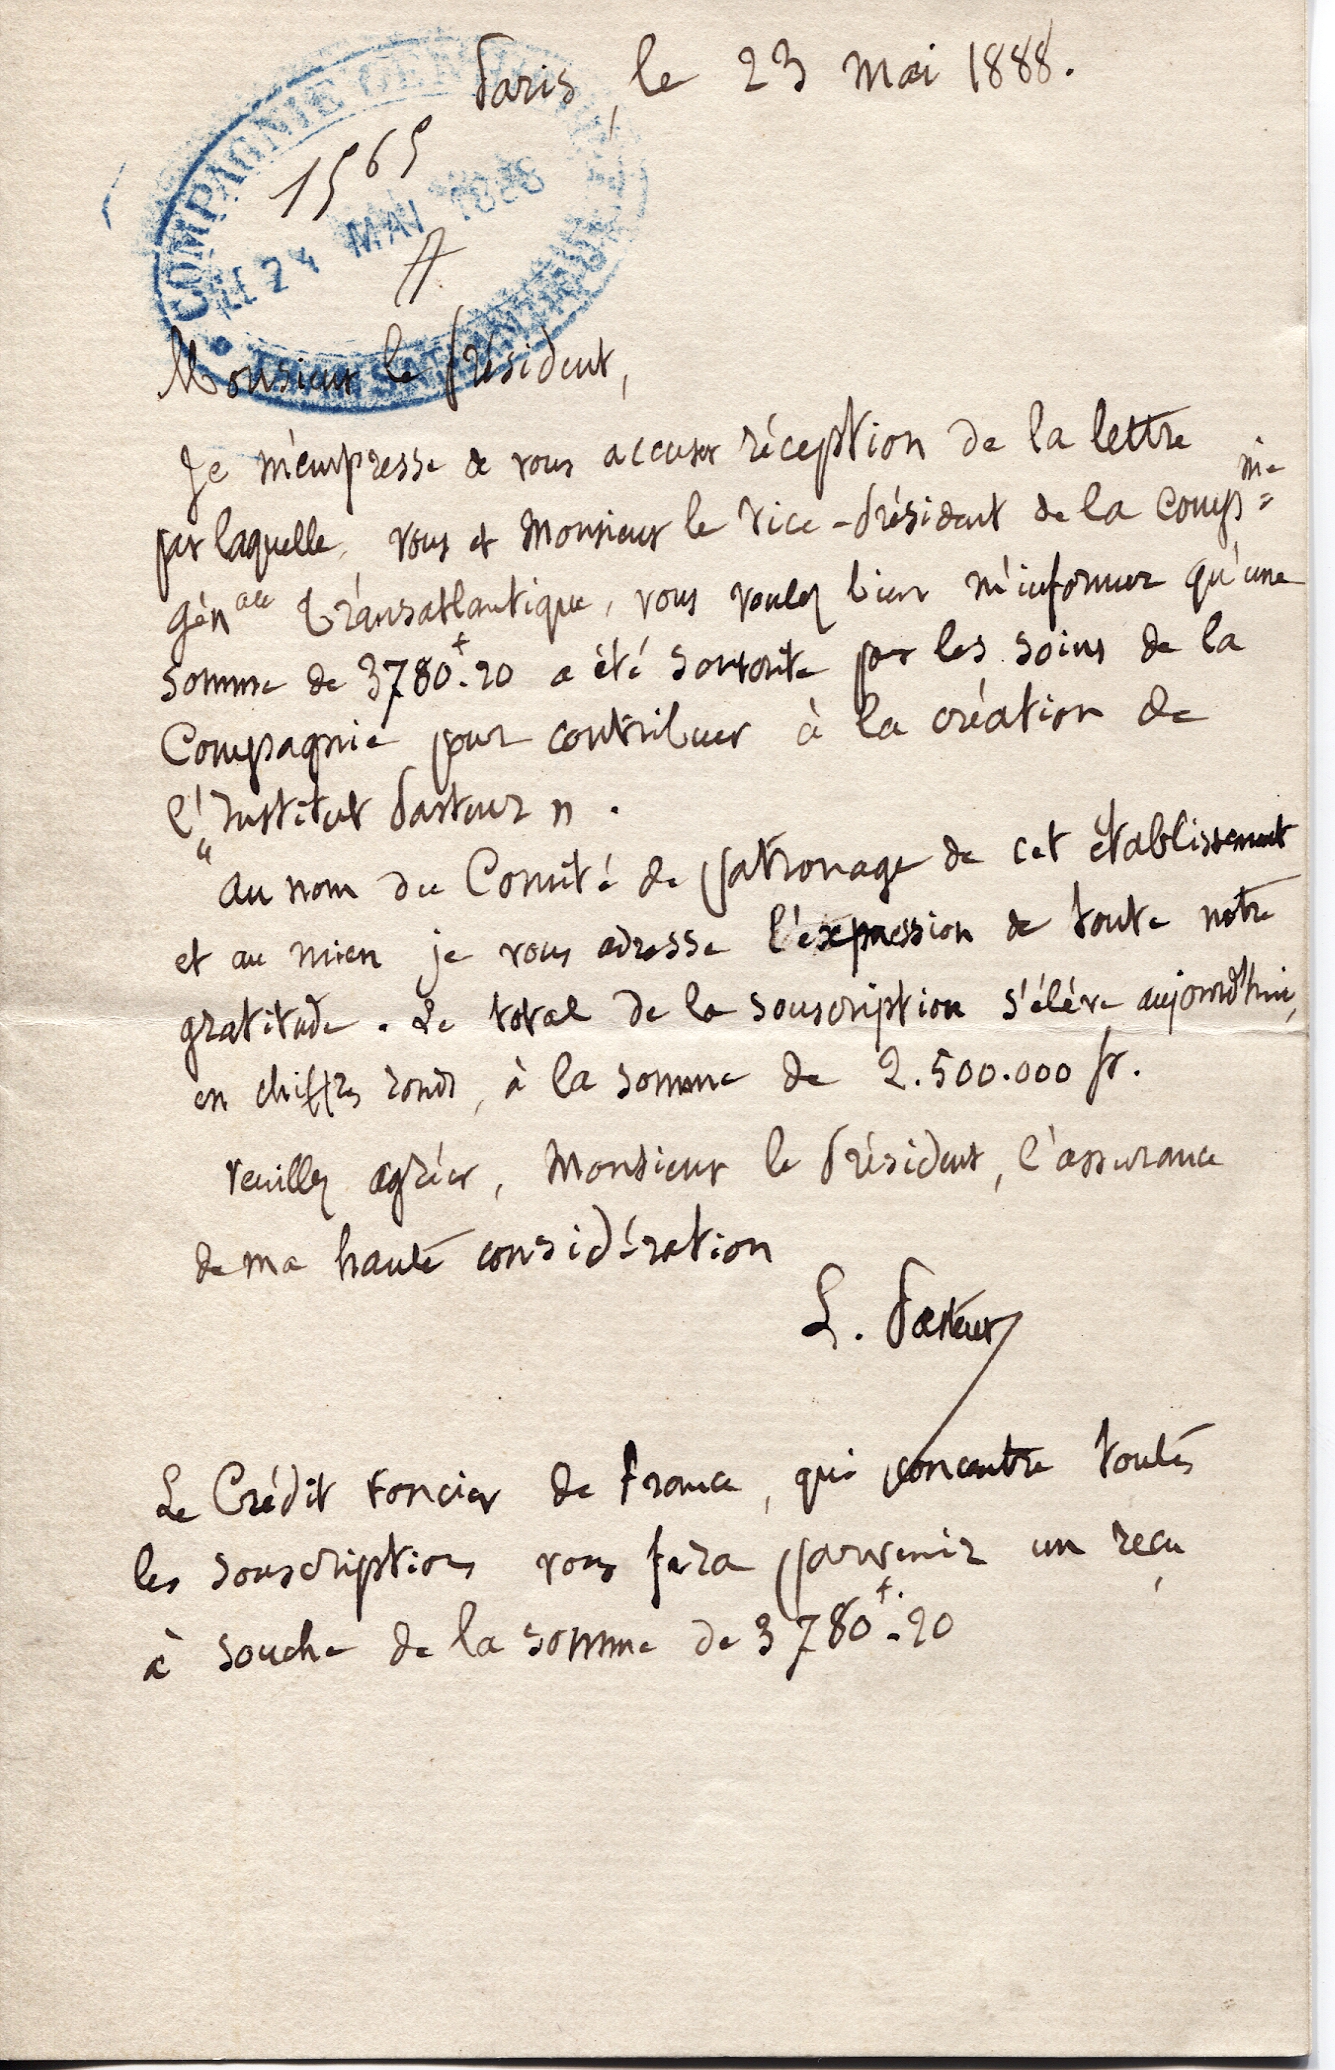 Paris, le 23 Mai 1888.
COMPAGNIE GENERALE
1565
LE 24 MAI 1888
A
TRANSATLANTIQUE
Monsieur le Président,
Je m'empresse de vous accuser réception de la lettre
par laquelle, vous et Monsieur le Vice-Président de la Comp nie
Gén ale Transatlantique, vous voulez bien m'informer qu'une
somme de 3780 f. 20 a été souscrite par les soins de la
Compagnie pour contribuer à la création de
l'"Institut Pasteur".
Au nom du Comité de patronage de cet établissement
et au mien je vous adresse l'expression de toute notre
gratitude. Le total de la souscription s'élève aujourd'hui,
en chiffres ronds, à la somme de 2.500.000 fr.
Veuillez agréer, Monsieur le Président, l'assurance
de ma haute considération
L. Pasteur
Le Crédit Foncier de France, qui concentre toutes
les souscriptions vous fera parvenir un reçu
à souche de la somme de 3780 f. 20